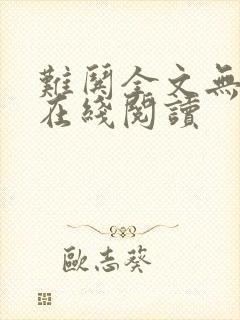 難鬨全文無
在綫閱讀
歐志葵